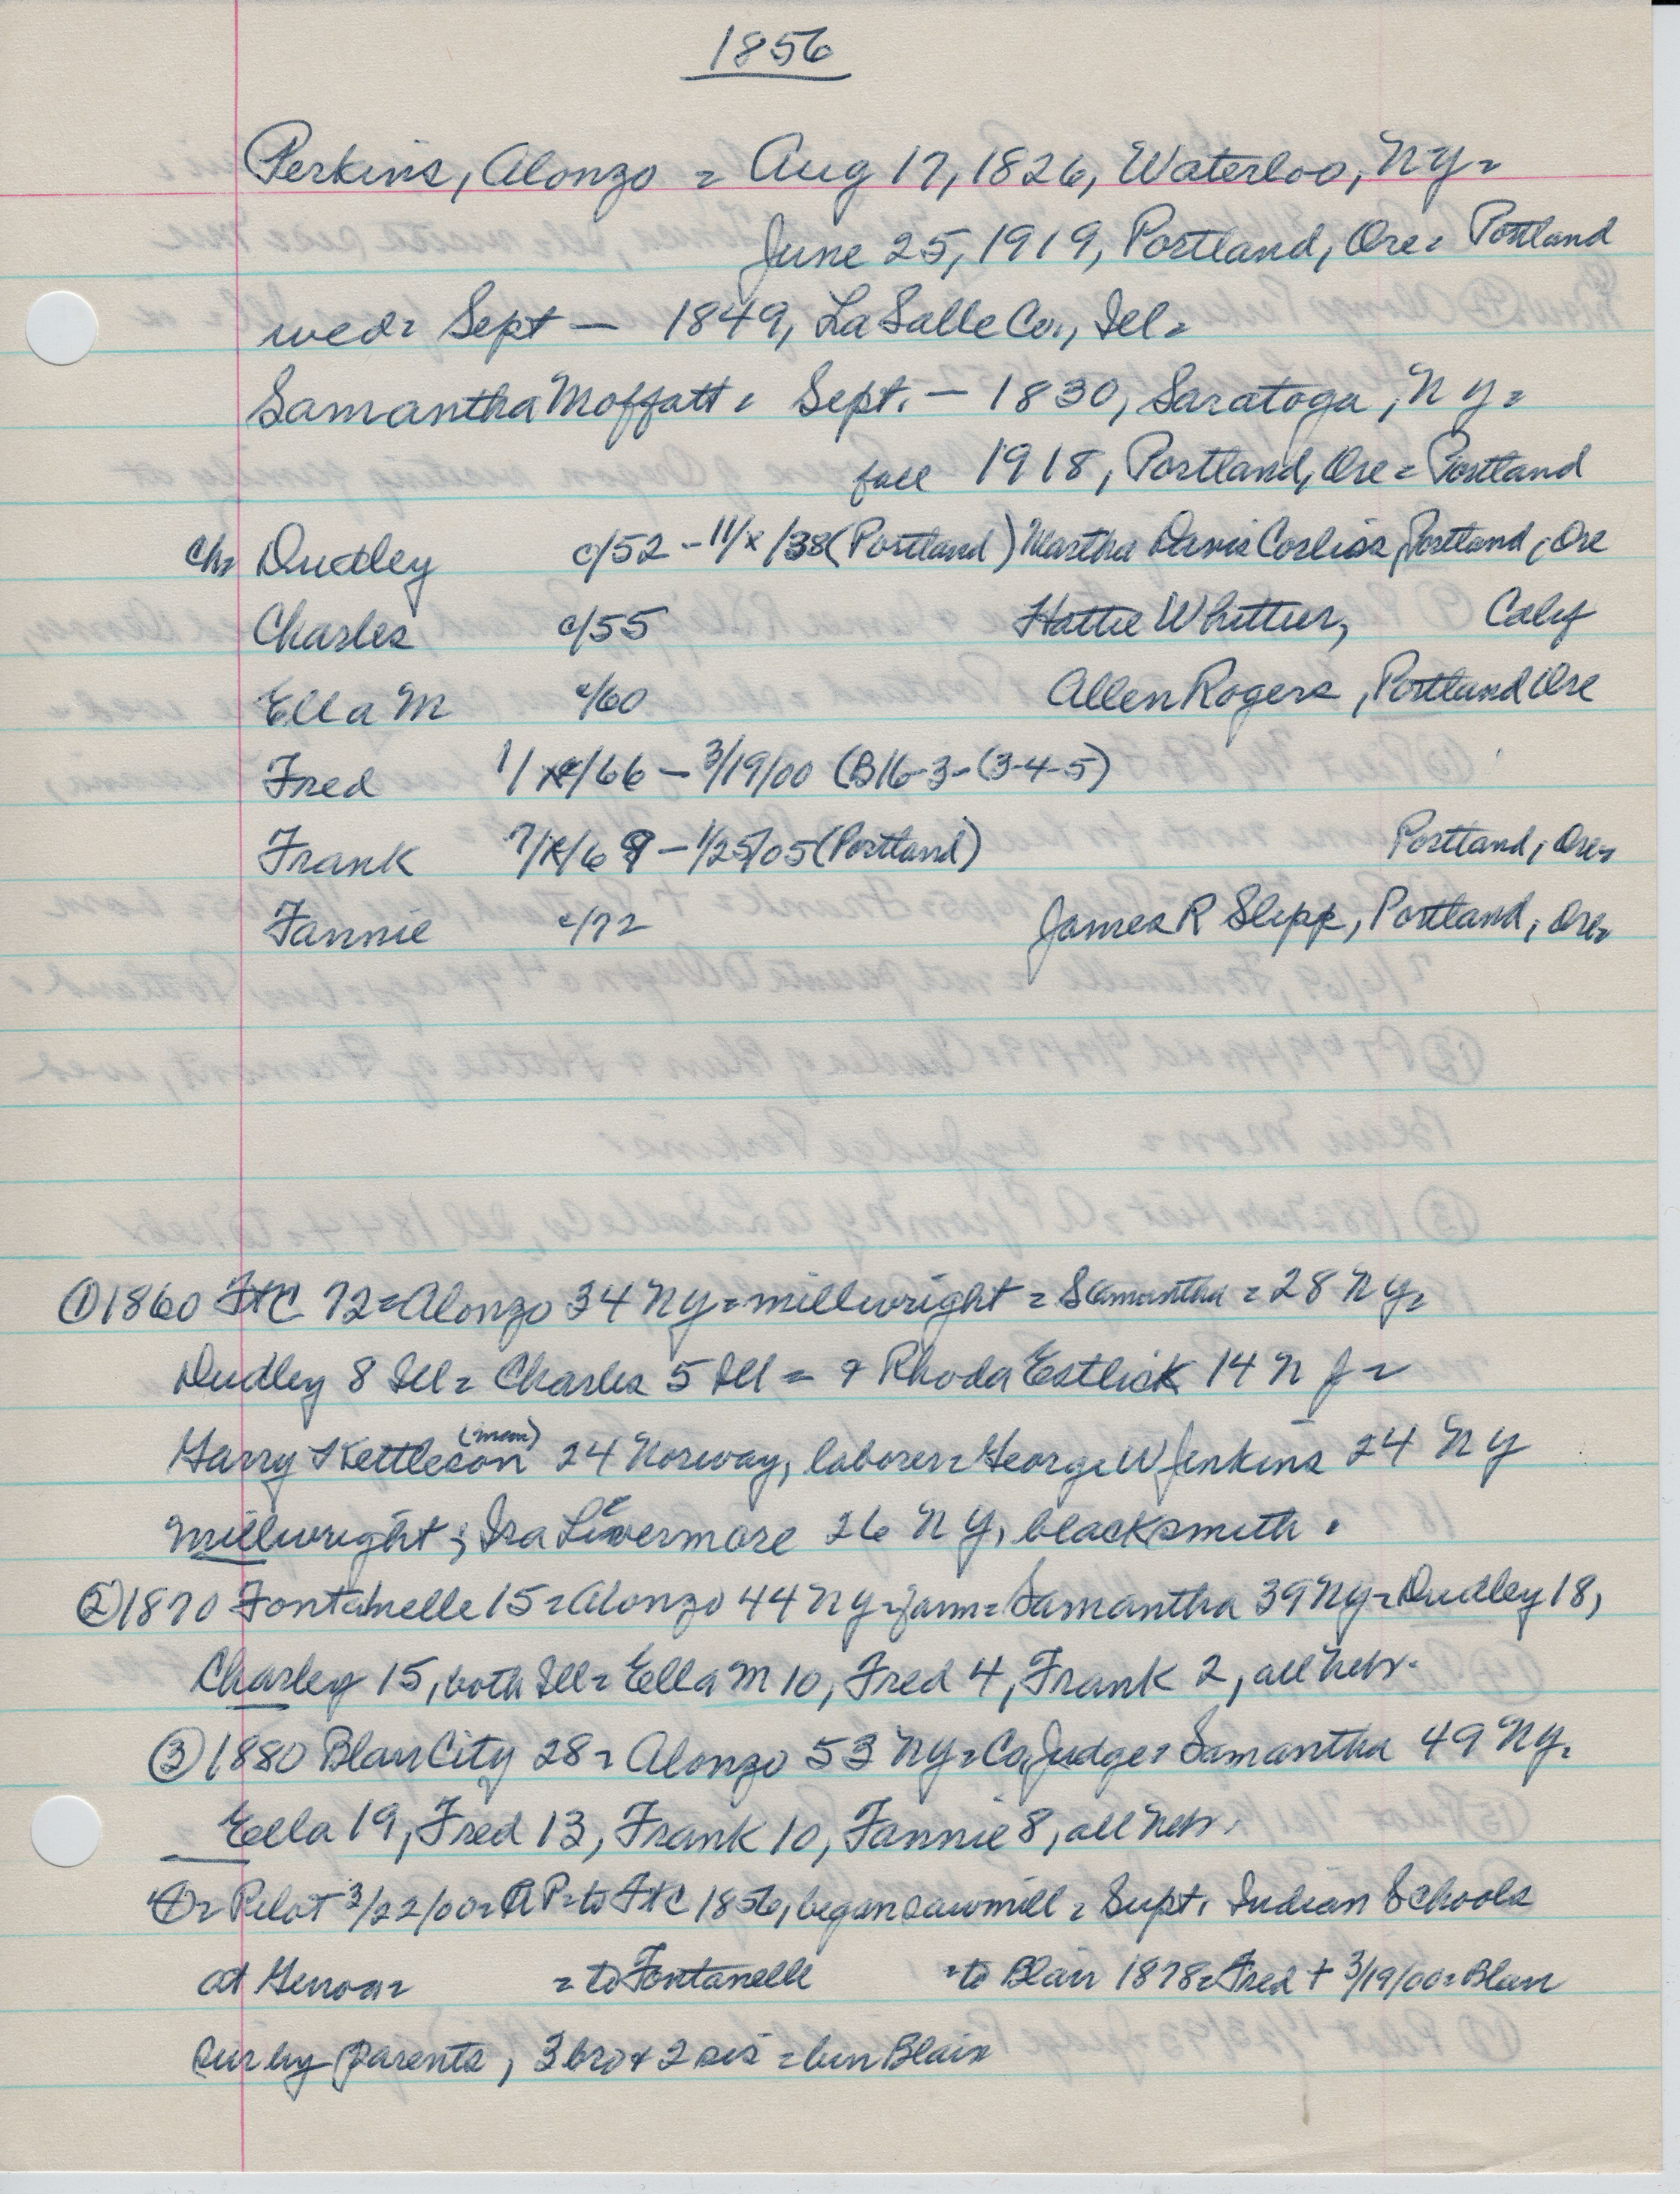 1856
Perkins, Alonzo = Aug 17, 1826, Waterloo, NY=
June 25, 1919, Portland, Ore= Portland
wed= Sept — 1849, LaSalle Co., Ill=
Samantha Moffatt = Sept. — 1830, Saratoga, NY=
fall 1918, Portland, Ore = Portland
ch= Dudley c/52 - 11/x/38 (Portland) Martha Davis Corliss, Portland, Ore
Charles c/55 Hattie Whittier, Calif
Ella M c/60 Allen Rogers, Portland Ore
Fred 1/x/66 — 3/19/00 (B16-3-(3-4-5)
Frank 7/x/69 — 1/25/05 (Portland) Portland, Ore=
Fannie c/72 James R Slipp, Portland, Ore=
① 1860 FtC 72= Alonzo 34 NY= millwright = Samantha = 28 NY=
Dudley 8 Ill= Charles 5 Ill = & Rhoda Estlick 14 NJ=
Harry Kettleson (mem) 24 Norway, laborer= George W Jenkins 24 NY
millwright; Ira Livermore 26 NY, blacksmith.
② 1870 Fontanelle 15= Alonzo 44 NY= farm= Samantha 39 NY= Dudley 18,
Charley 15, both Ill= Ella M 10, Fred 4, Frank 2, all Nebr.
③ 1880 Blair City 28= Alonzo 53 NY= Co Judge= Samantha 49 NY=
Ella 19, Fred 13, Frank 10, Fannie 8, all Nebr.
④= Pilot 3/22/00= AP= to FtC 1856, began sawmill = Supt. Indian Schools
at Genoa= = to Fontanelle = to Blair 1878= Fred + 3/19/00= Blair
sur by parents, 3 bro & 2 sis = bur Blair